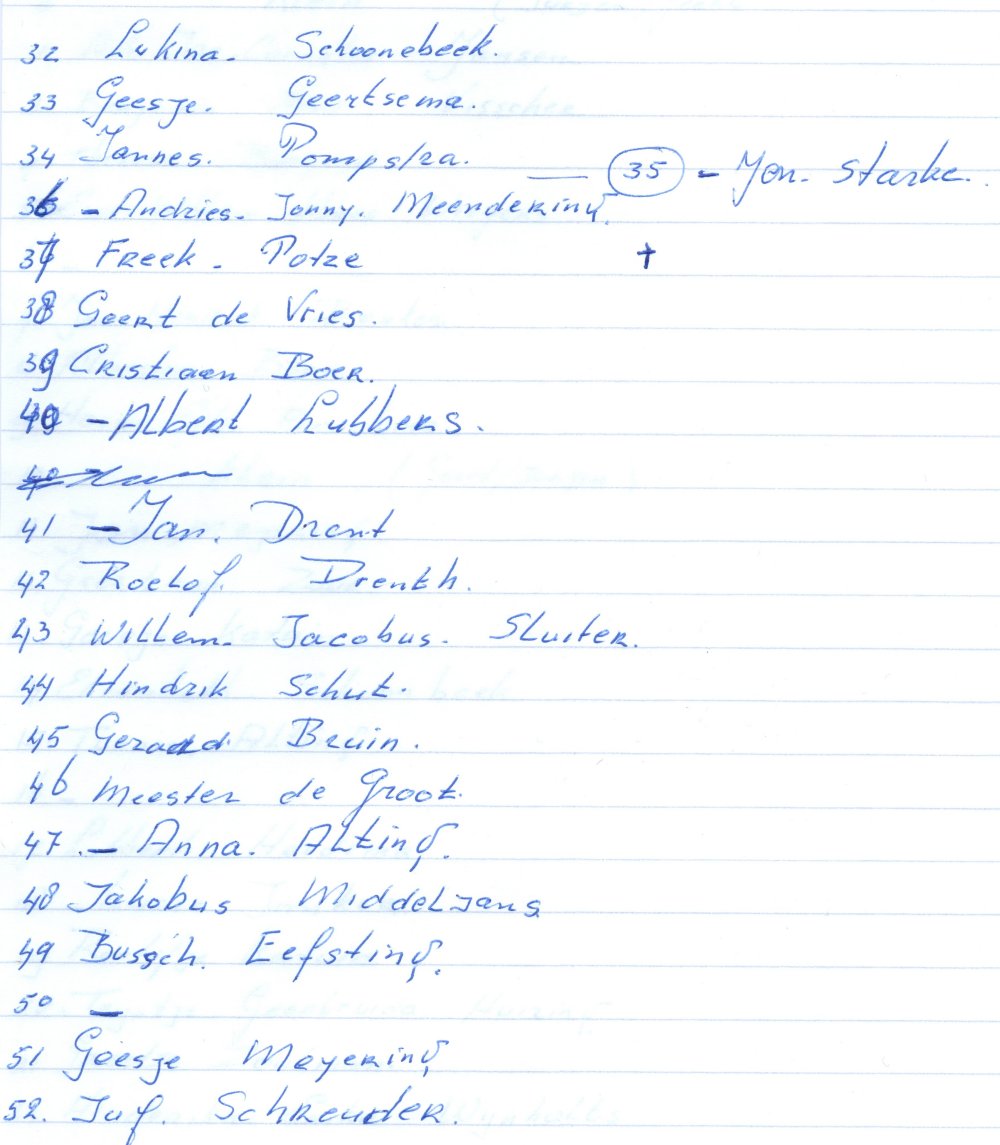 32 Lukina. Schoonebeek.
33 Geesje. Geertsema.
34 Jannes. Pompstra.
— 35 - Jon. Starke.
36 - Andries. Jonny. Meendering.
37 Freek. Potze †
38 Geert de Vries.
39 Cristiaen Boer.
40 - Albert Lubbers.
41 - Jan. Drent
42 Roelof. Drenth.
43 Willem. Jacobus. Sluiter.
44 Hindrik Schut.
45 Gerard. Bruin.
46 Meester de Groot.
47 - Anna. Alting.
48 Jakobus Middeljans
49 Bussch. Eefsting.
50 -
51 Geesje Meyering
52. Juf. Schreuder.